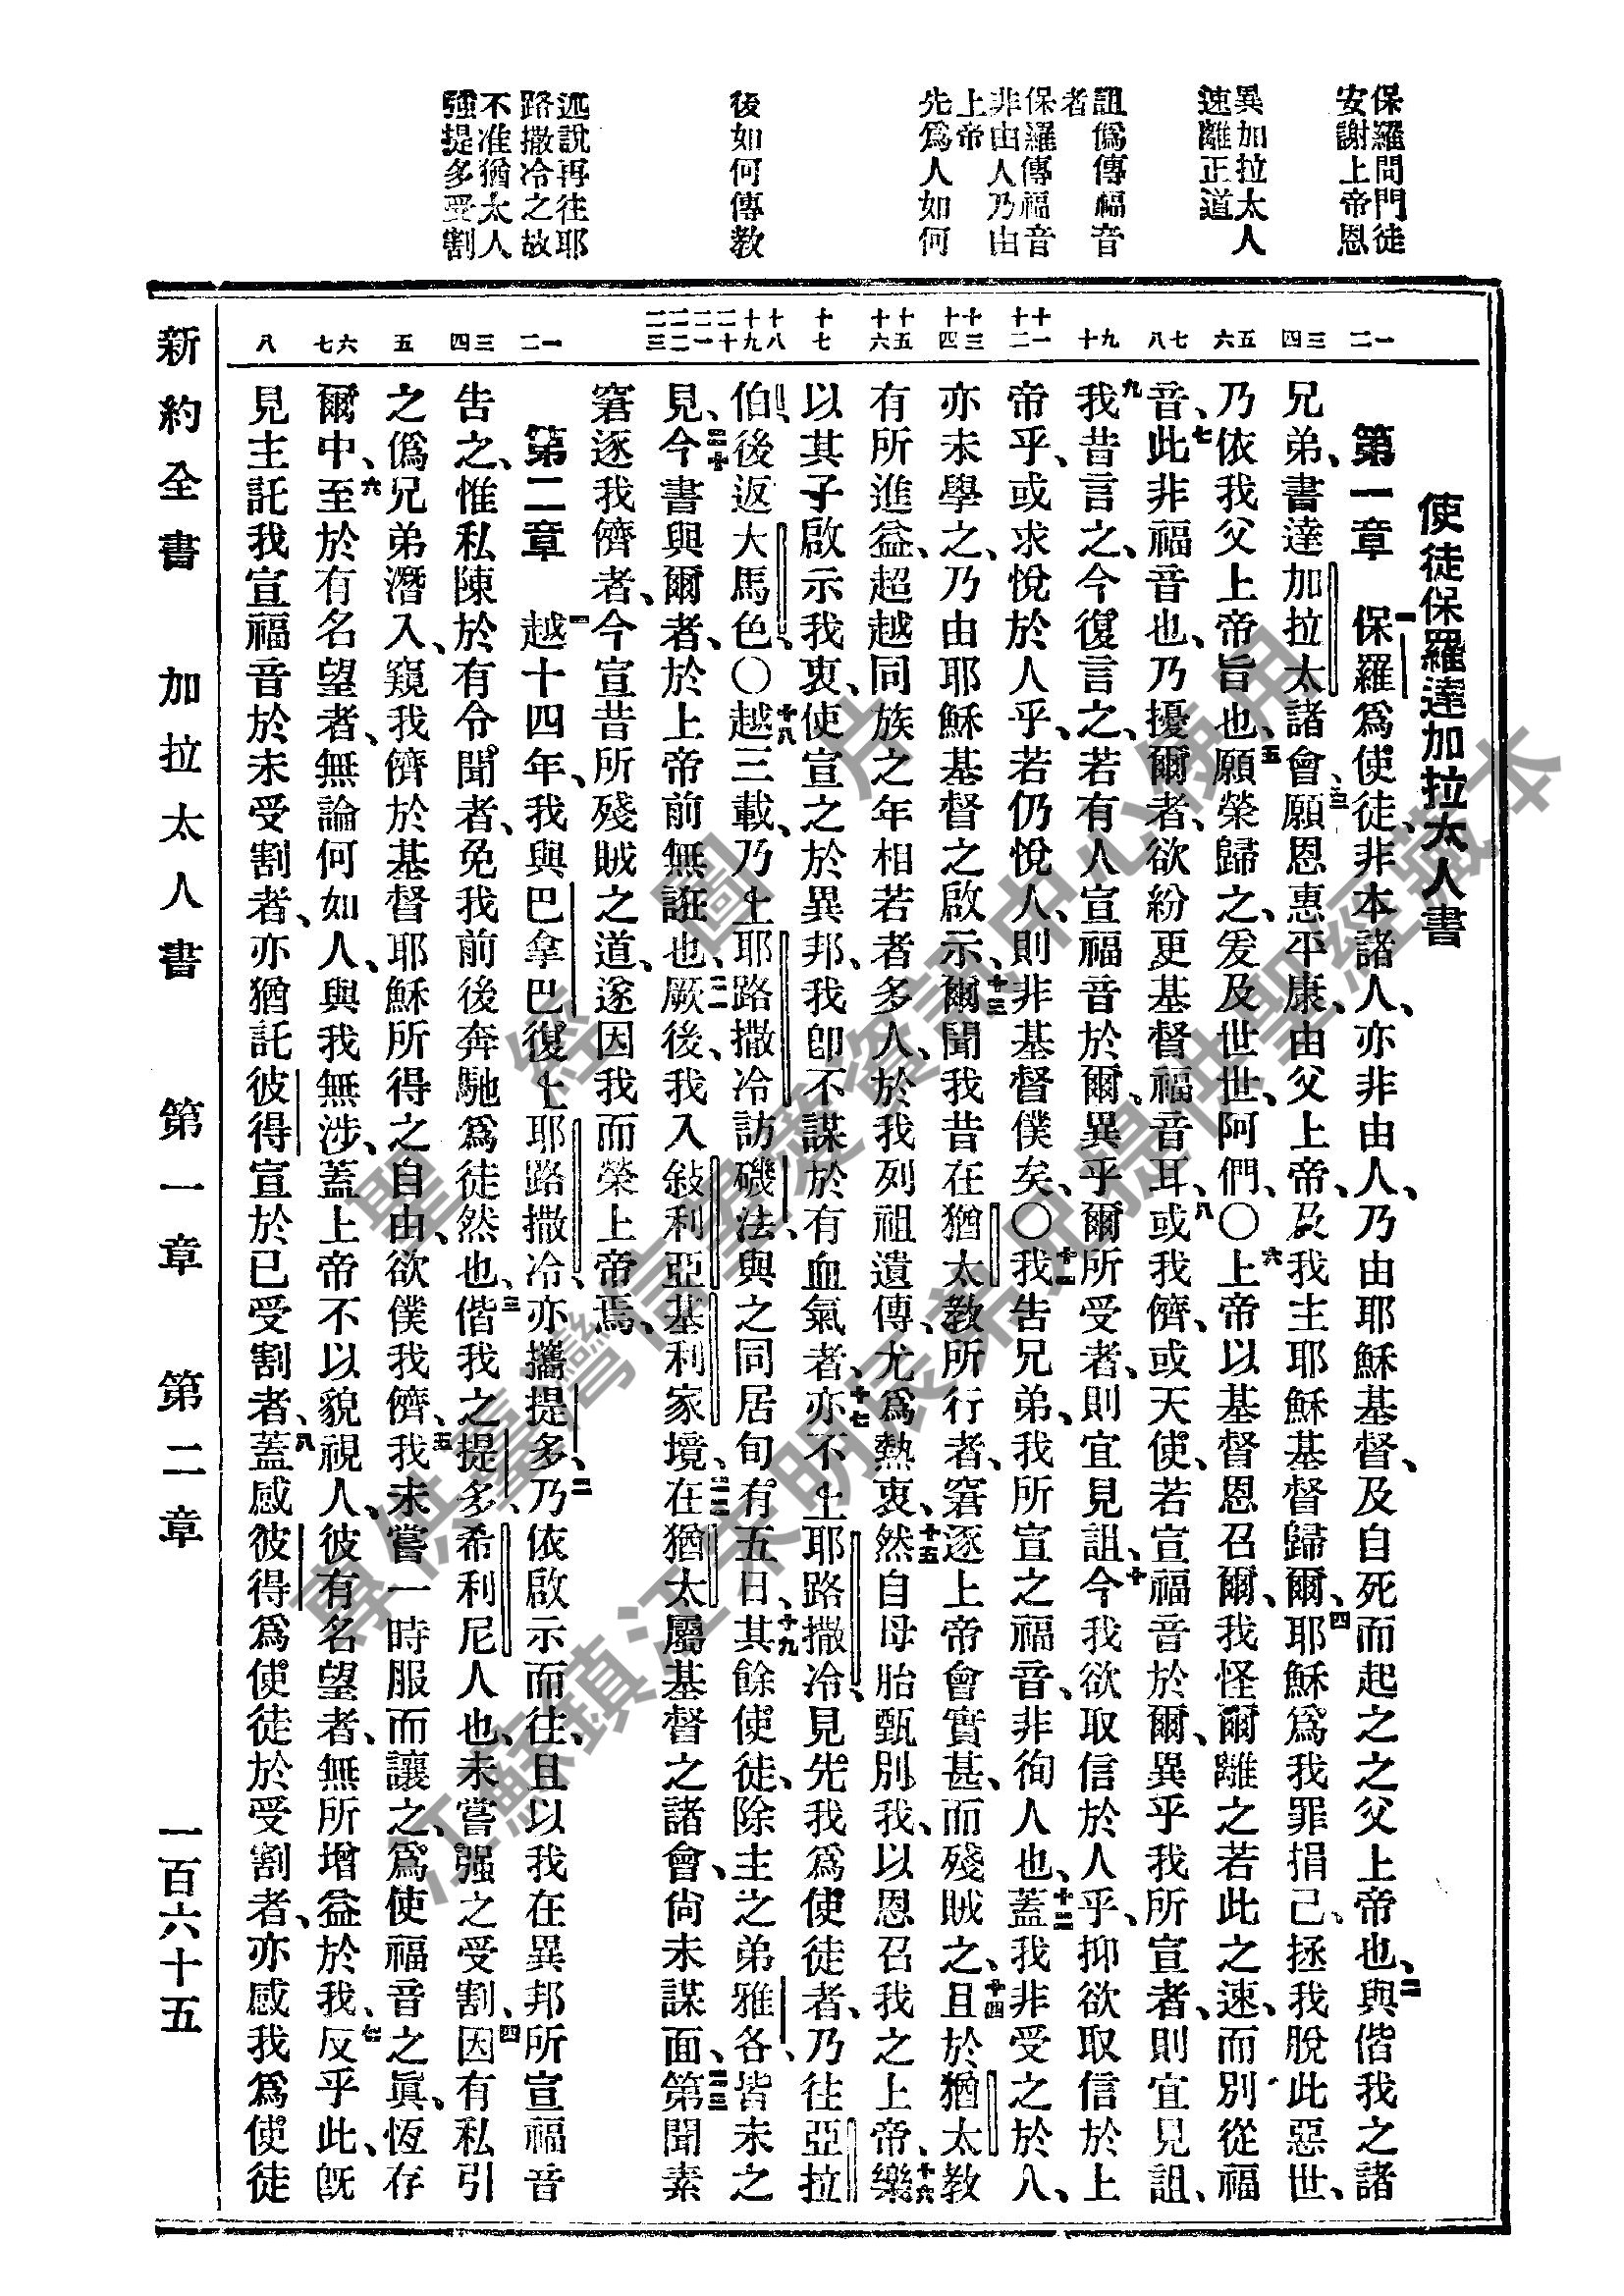 保羅問門徒
安謝上帝恩
異加拉太人
速離正道
詛僞傳福音
者
保羅傳福音
非由人乃由
上帝
先爲人如何
後如何傳教
述說再往耶
路撒冷之故
不准猶太人
強提多受割
使徒保羅達加拉太人書
一二
第一章 一保羅爲使徒、非本諸人、亦非由人、乃由耶穌基督、及自死而起之之父上帝也、二與偕我之諸
三四
兄弟、書達加拉太諸會、三願恩惠平康、由父上帝、及我主耶穌基督歸爾、四耶穌爲我罪捐己、拯我脫此惡世、
五六
乃依我父上帝旨也、五願榮歸之、爰及世世、阿們、〇六上帝以基督恩召爾、我怪爾離之若此之速、而別從福
七八
音、七此非福音也、乃擾爾者、欲紛更基督福音耳、八或我儕、或天使、若宣福音於爾、異乎我所宣者、則宜見詛、
九十
九我昔言之、今復言之、若有人宣福音於爾、異乎爾所受者、則宜見詛、十今我欲取信於人乎、抑欲取信於上
十一十二
帝乎、或求悅於人乎、若仍悅人、則非基督僕矣、〇十一我告兄弟、我所宣之福音、非徇人也、十二蓋我非受之於人、
十三十四
亦未學之、乃由耶穌基督之啟示、十三爾聞我昔在猶太教所行者、窘逐上帝會實甚、而殘賊之、十四且於猶太教
十五十六
有所進益、超越同族之年相若者多人、於我列祖遺傳、尤爲熱衷、十五然自母胎甄別我、以恩召我之上帝、十六樂
十七
以其子啟示我衷、使宣之於異邦、我卽不謀於有血氣者、十七亦不上耶路撒冷、見先我爲使徒者、乃往亞拉
十八十九
伯、後返大馬色、〇十八越三載、乃上耶路撒冷、訪磯法、與之同居旬有五日、十九其餘使徒、除主之弟雅各、皆未之
二十二一二二二三
見、二十今書與爾者、於上帝前無誑也、二一厥後、我入敍利亞基利家境、二二在猶太屬基督之諸會、尙未謀面、二三第聞素
窘逐我儕者、今宣昔所殘賊之道、遂因我而榮上帝焉、
一二
第二章 一越十四年、我與巴拿巴復上耶路撒冷、亦攜提多、二乃依啟示而往、且以我在異邦所宣福音
三四
告之、惟私陳於有令聞者、免我前後奔馳爲徒然也、三偕我之提多、希利尼人也、未嘗强之受割、四因有私引
五
之僞兄弟潛入、窺我儕於基督耶穌所得之自由、欲僕我儕、五我未嘗一時服而讓之、爲使福音之眞、恆存
六七
爾中、六至於有名望者、無論何如人、與我無涉、蓋上帝不以貌視人、彼有名望者、無所增益於我、七反乎此、旣
八
見主託我宣福音於未受割者、亦猶託彼得宣於已受割者、八蓋感彼得爲使徒於受割者、亦感我爲使徒
新約全書 加拉太人書 第一章 第二章 一百六十五
聖經圖片
專供臺灣信望愛資訊中心使用
江蘇鎮江朱明辰弟兄提供聖經藏本